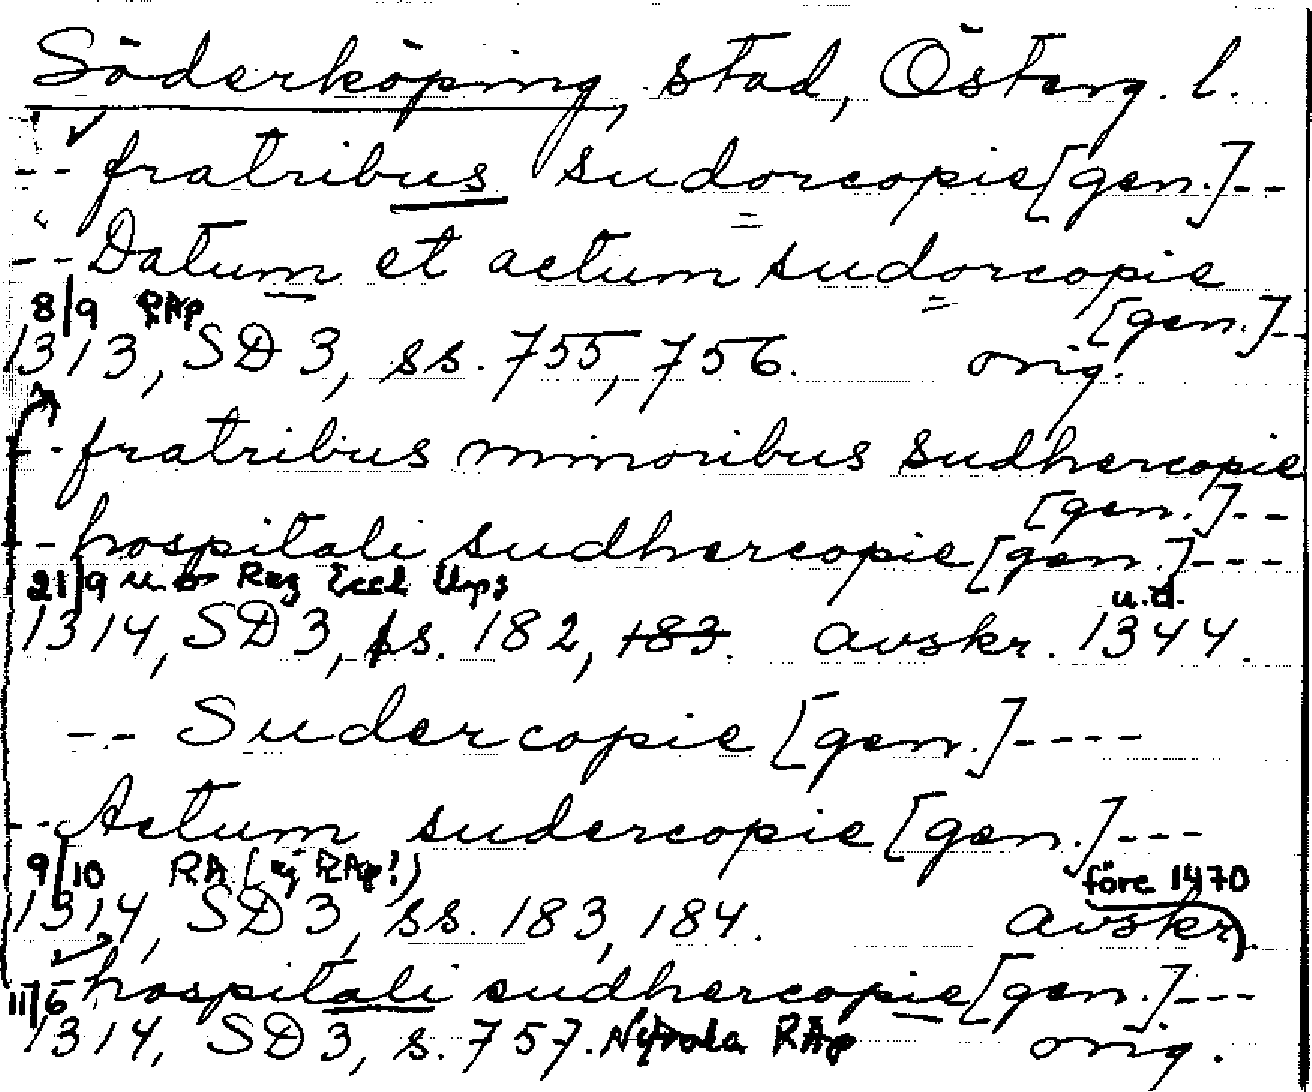 Söderköping, stad, Österg. l.
-- fratribus sudorcopie [gen.]--
-- Datum et actum sudorcopie
[gen.]-
8/9 RAp
1313, SD 3, ss. 755, 756. orig.
-- fratribus minoribus sudhercopie
[gen.]--
-- hospitali sudhercopie [gen.]---
21/9 Reg Eccl Ups u.d.
1314, SD 3, s. 182, 183. avskr. 1344.
-- Sudercopie [gen.]----
-- Actum sudercopie [gen.]---
9/10 RA (ej RAp!) före 1470
1314, SD 3, ss. 183, 184. avskr.
hospitali sudhercopie [gen.]---
11/6
1314, SD 3, s. 757. RAp orig.